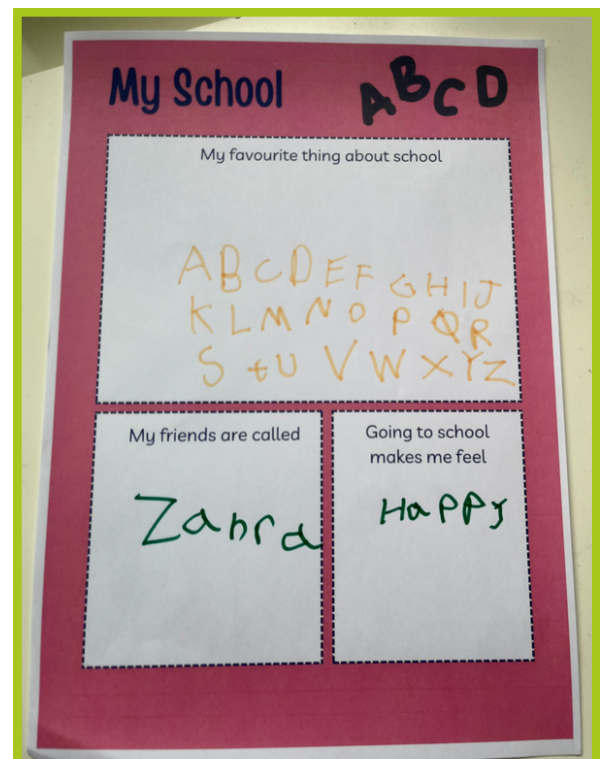 My School
ABCD
My favourite thing about school
ABCDEFGHIJ
KLMNOPQR
StUVWXYZ
My friends are called
Zahra
Going to school
makes me feel
Happy